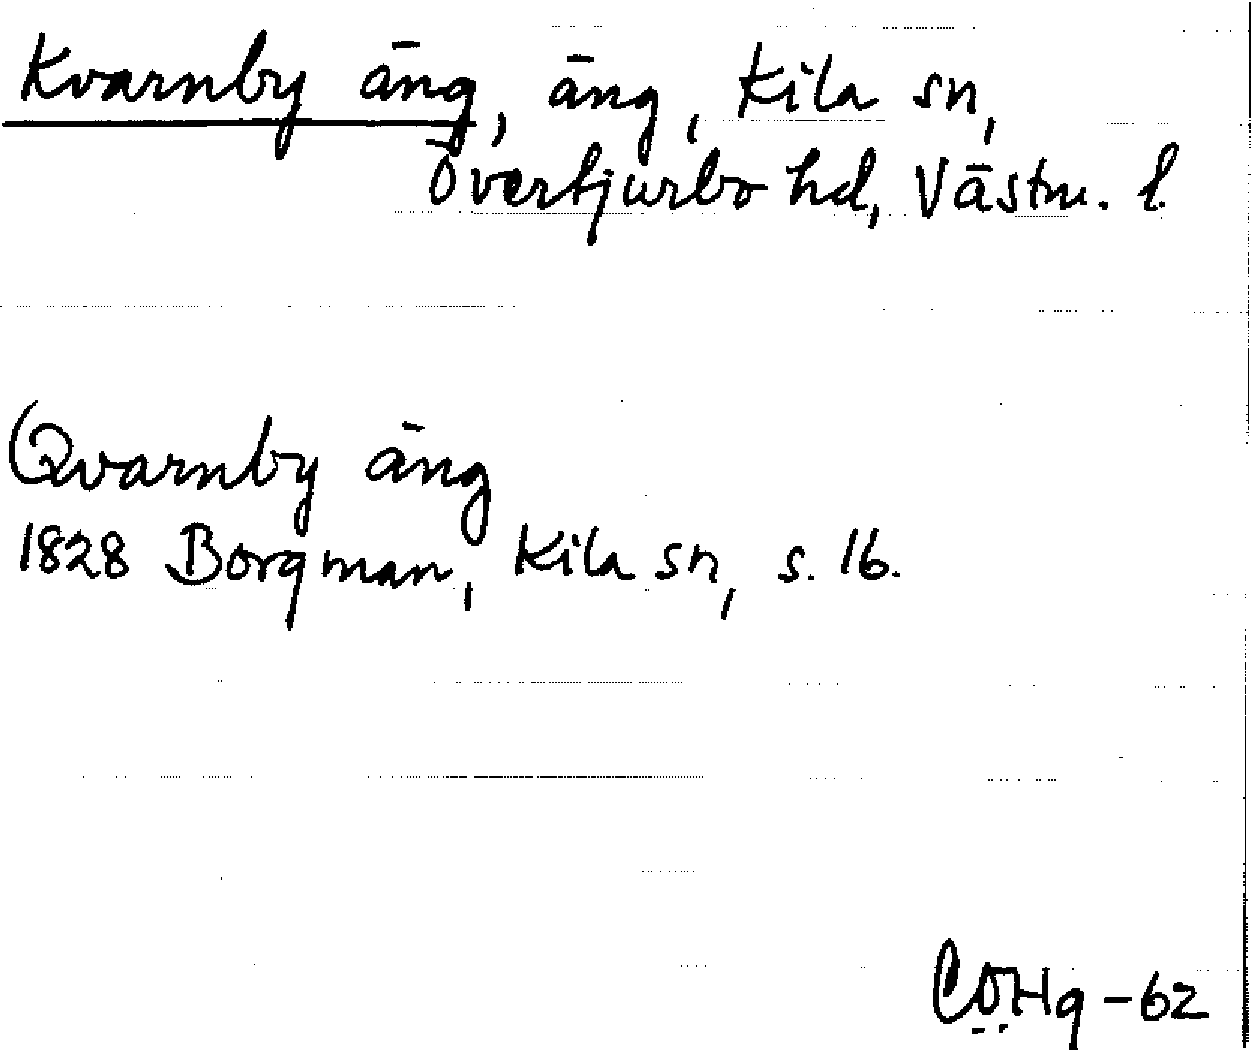 Kvarnby äng, äng, Kila sn,
Övertjurbo hd, Västm. l.
Qvarnby äng
1828 Borgman, Kila sn, s. 16.
-62